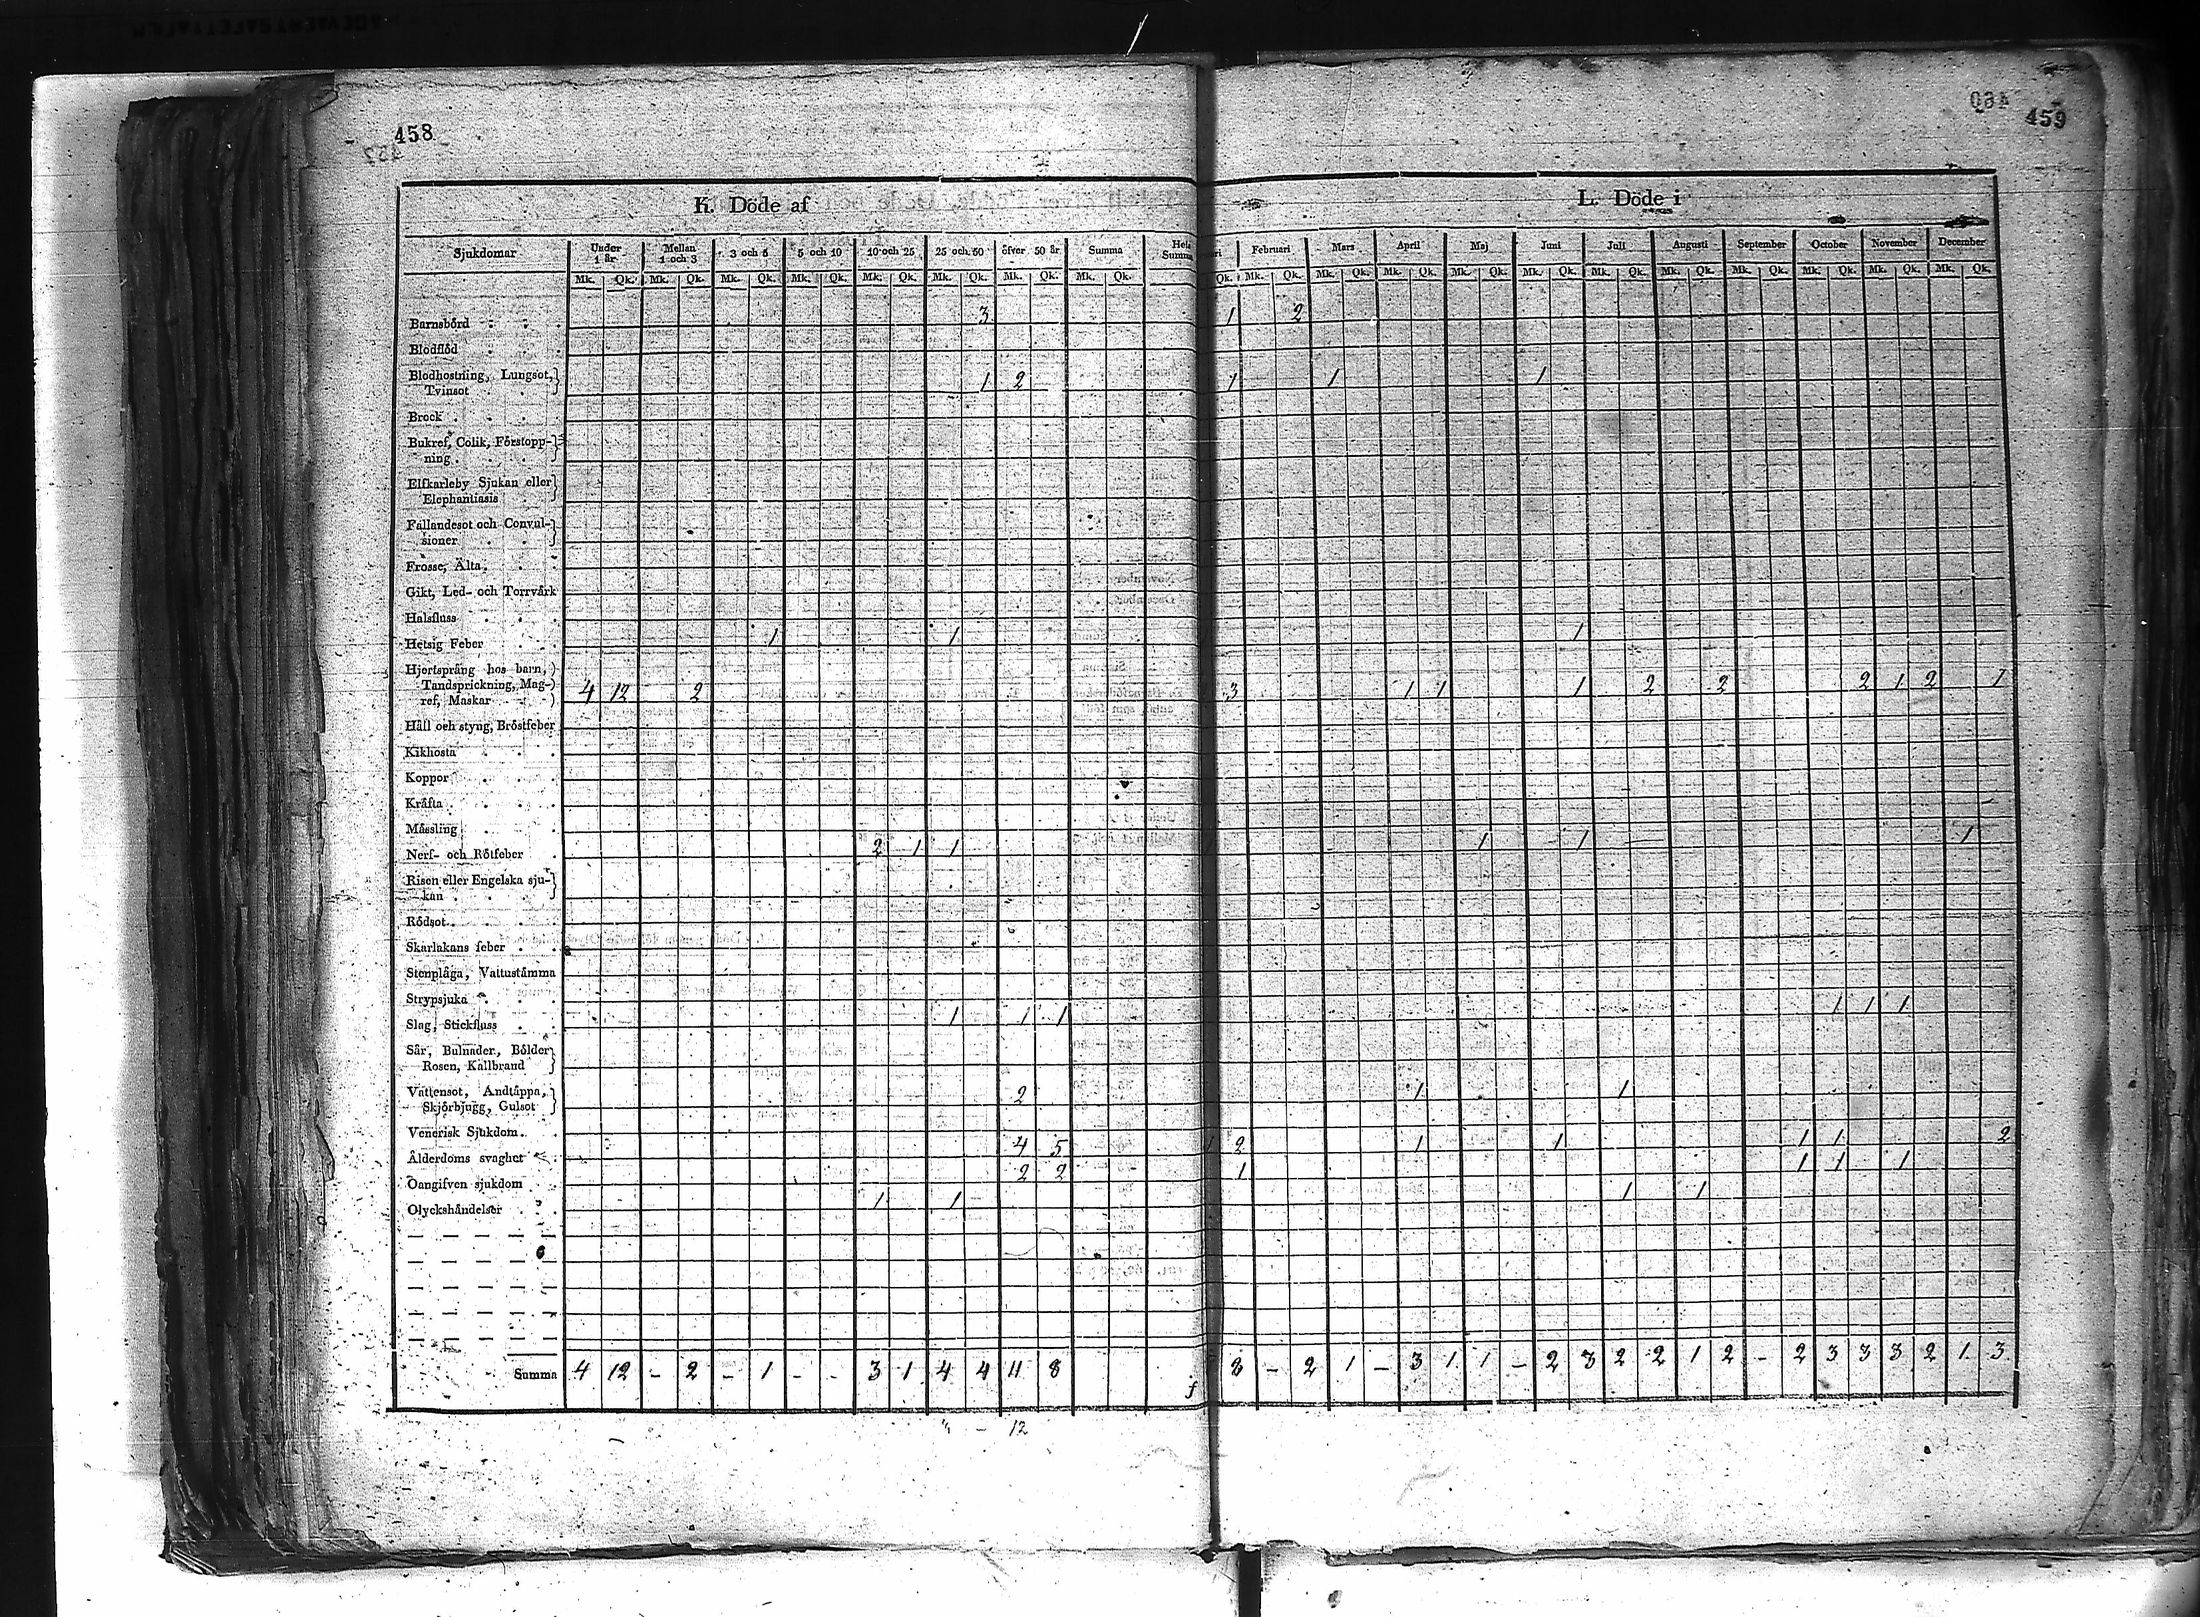 458
459
K. Döde af
L. Döde i
Sjukdomar Under 1 år. Mellan 1 och 3 3 och 5 5 och 10 10 och 25 25 och 50 öfver 50 år. Summa Hela Summa
Februari Mars April Maj Juni Juli Augusti September October November December
Mk. Qk. Mk. Qk. Mk. Qk. Mk. Qk. Mk. Qk. Mk. Qk. Mk. Qk. Mk. Qk.
Qk. Mk. Qk. Mk. Qk. Mk. Qk. Mk. Qk. Mk. Qk. Mk. Qk. Mk. Qk. Mk. Qk. Mk. Qk. Mk. Qk. Mk. Qk.
Barnsbörd 3 1 2
Blodflöd
Blodhostning, Lungsot,
Tvinsot 1 2 1 1 1
Brock
Bukref, Colik, Förstopp-
ning
Elfkarleby Sjukan eller
Elephantiasis
Fallandesot och Convul-
sioner
Frossa, Älta
Gikt, Led- och Torrvärk
Halsfluss
Hetsig Feber 1 1 1
Hjertsprång hos barn,
Tandsprickning, Mag-
ref, Maskar 4 12 2 3 1 1 1 2 2 2 1 2 1
Håll och styng, Bröstfeber
Kikhosta
Koppor
Kräfta
Mässling
Nerf- och Rötfeber 2 1 1 1 1 1 1
Risen eller Engelska sju-
kan
Rödsot
Skarlakans feber
Stenplåga, Vattustämma
Strypsjuka
Slag, Stickfluss 1 1 1 1 1 1
Sår, Bulnader, Bölder
Rosen, Kallbrand
Vattensot, Andtäppa,
Skjörbjugg, Gulsot 2 1 1
Venerisk Sjukdom
Ålderdoms svaghet 4 5 1 2 1 1 1 1 2
Oangifven sjukdom 2 2 1 1 1 1
Olyckshändelser 1 1 1 1
Summa 4 12 - 2 - 1 - - 3 1 4 4 11 8
8 - 2 1 - 3 1 1 - 2 3 2 2 1 2 - 2 3 3 3 2 1 3
12